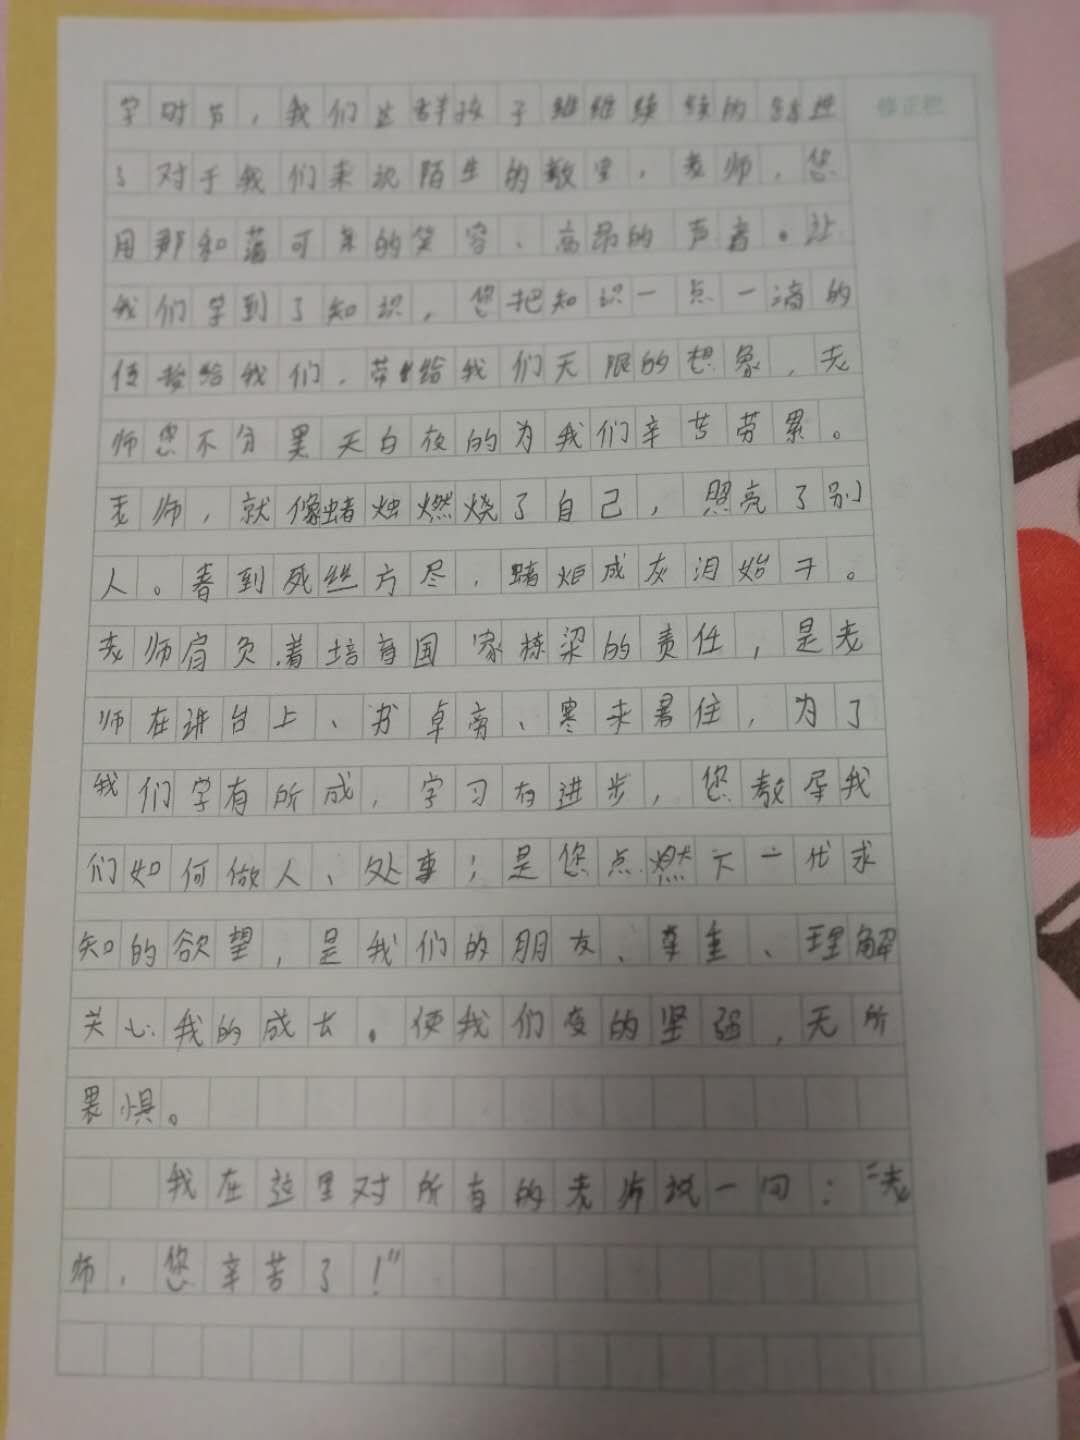 字时节，我们这群孩子继继续续的踏进 修正栏
了对于我们来说陌生的教室，老师，您
用那和蔼可亲的笑容、高昂的声音。让
我们学到了知识，您把知识一点一滴的
传授给我们，带给我们无限的想象，老
师您不分黑天白夜的为我们辛苦劳累。
老师，就像蜡烛燃烧了自己，照亮了别
人。春到死丝方尽，蜡炬成灰泪始干。
老师肩负着培育国家栋梁的责任，是老
师在讲台上、书桌旁、寒来暑往，为了
我们学有所成，学习有进步，您教导我
们如何做人、处事；是您点燃下一代求
知的欲望，是我们的朋友、尊重、理解
关心我的成长。使我们变的坚强，无所
畏惧。
我在这里对所有的老师说一句：“老
师，您辛苦了！”